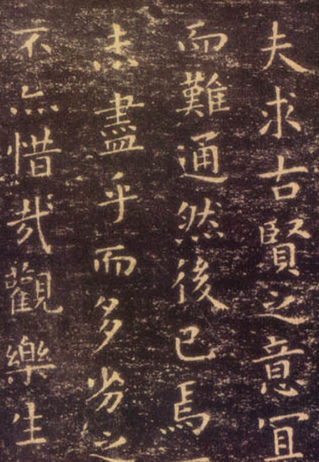 夫求古賢之意冝
而難通然後已焉
未盡乎而多劣之
不亦惜哉觀樂生